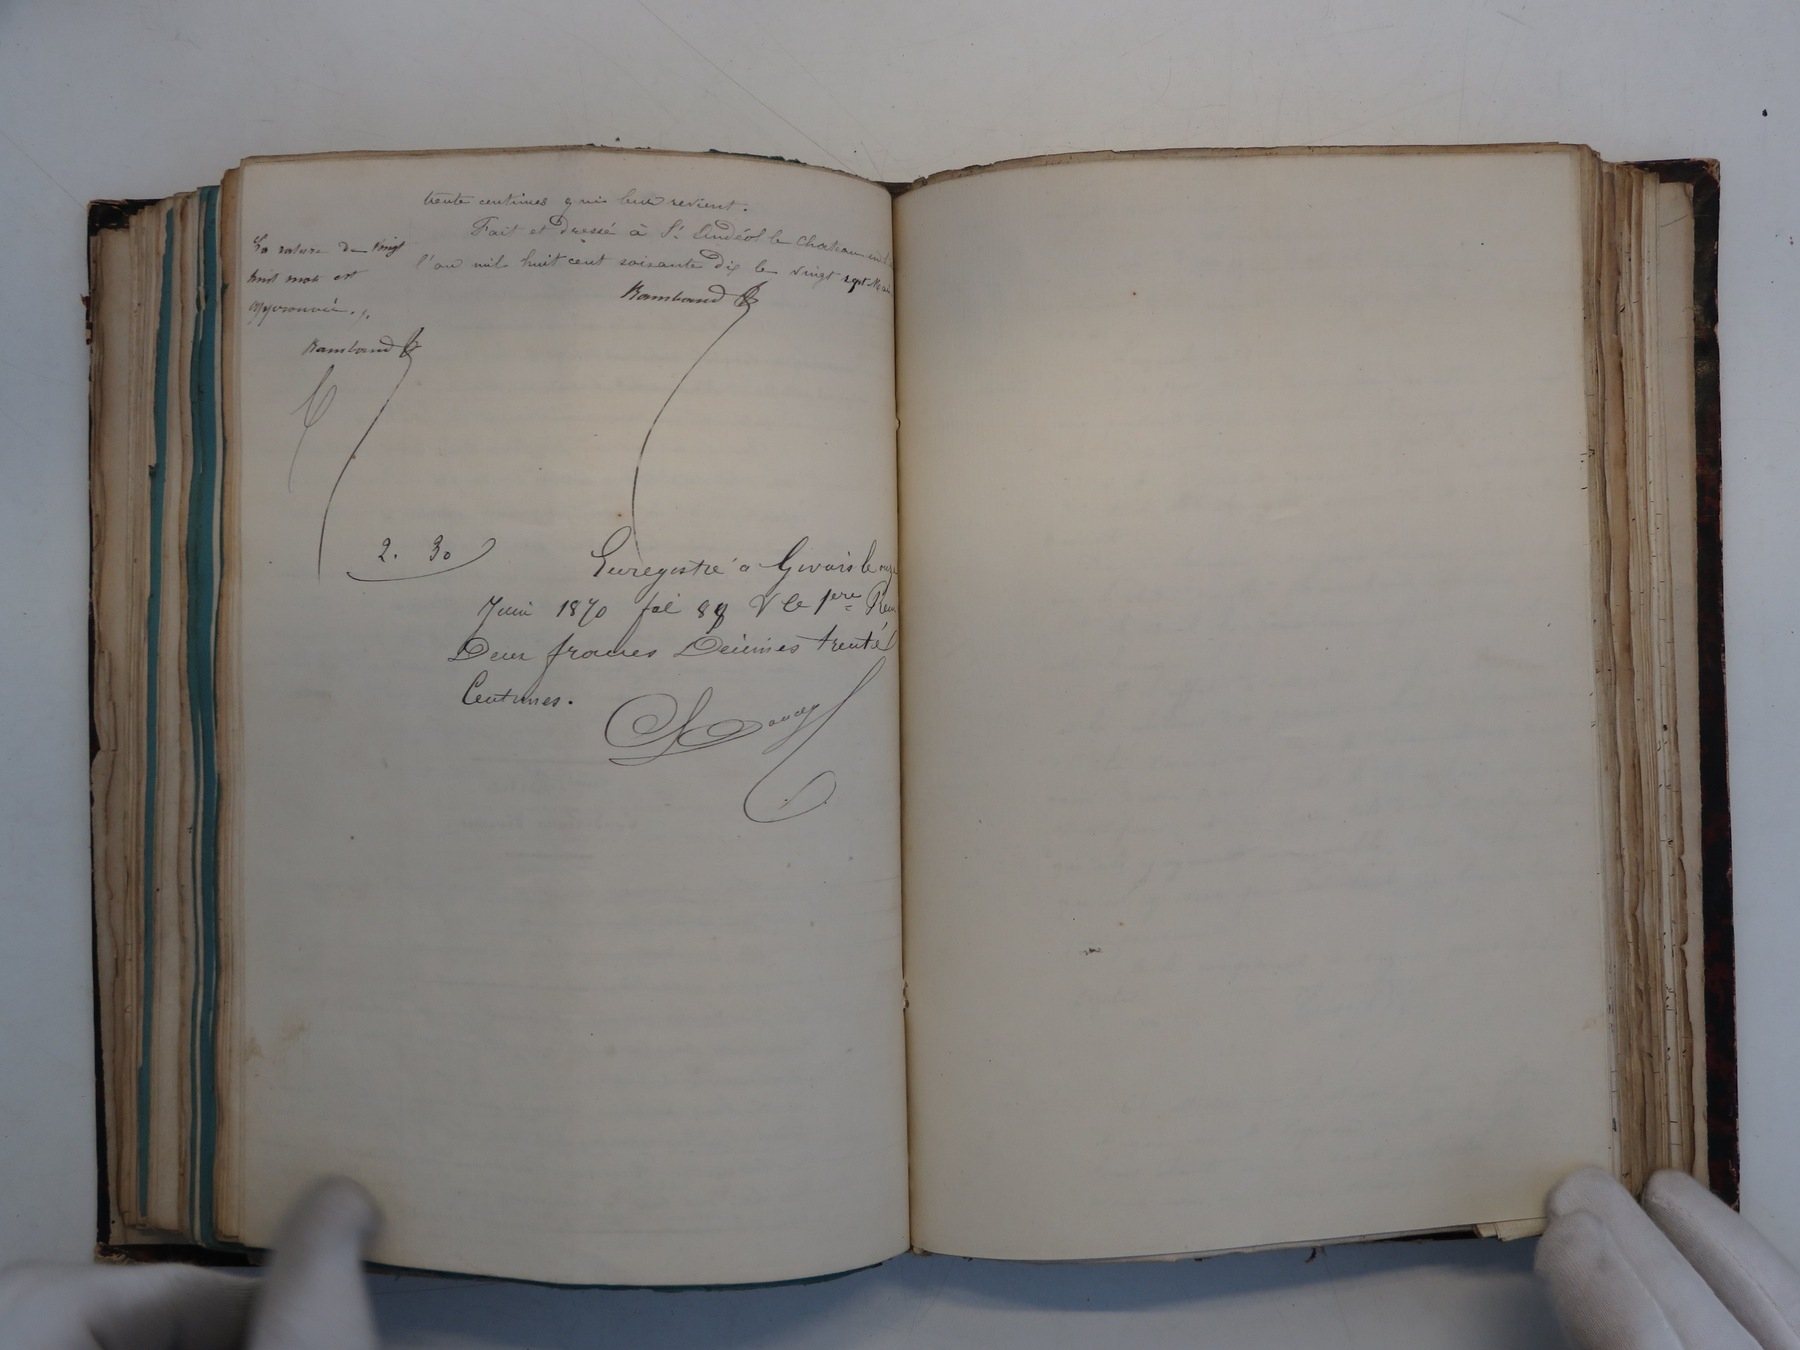 trente centimes qui leur revient.
Fait et dressé à St Andéol le Chateau
l'an mil huit cent soixante dix le vingt sept Mai
Rambaud
La rature de vingt
huit mots est
approuvée.
Rambaud
2. 30
Enregistré à Givors le onze
Juin 1870 fol 88 V Ce 1ere Reçu
Deux francs Décimes trente
Centimes.